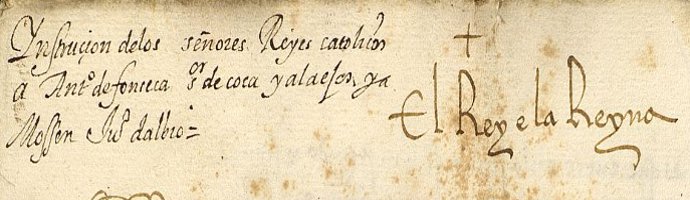 Ynstruçion delos señores Reyes catolicos
a Antº de fonseca sºʳ de coca y alaejos, y a
Mossen Juº dalbio
+
El Rey e la Reyna